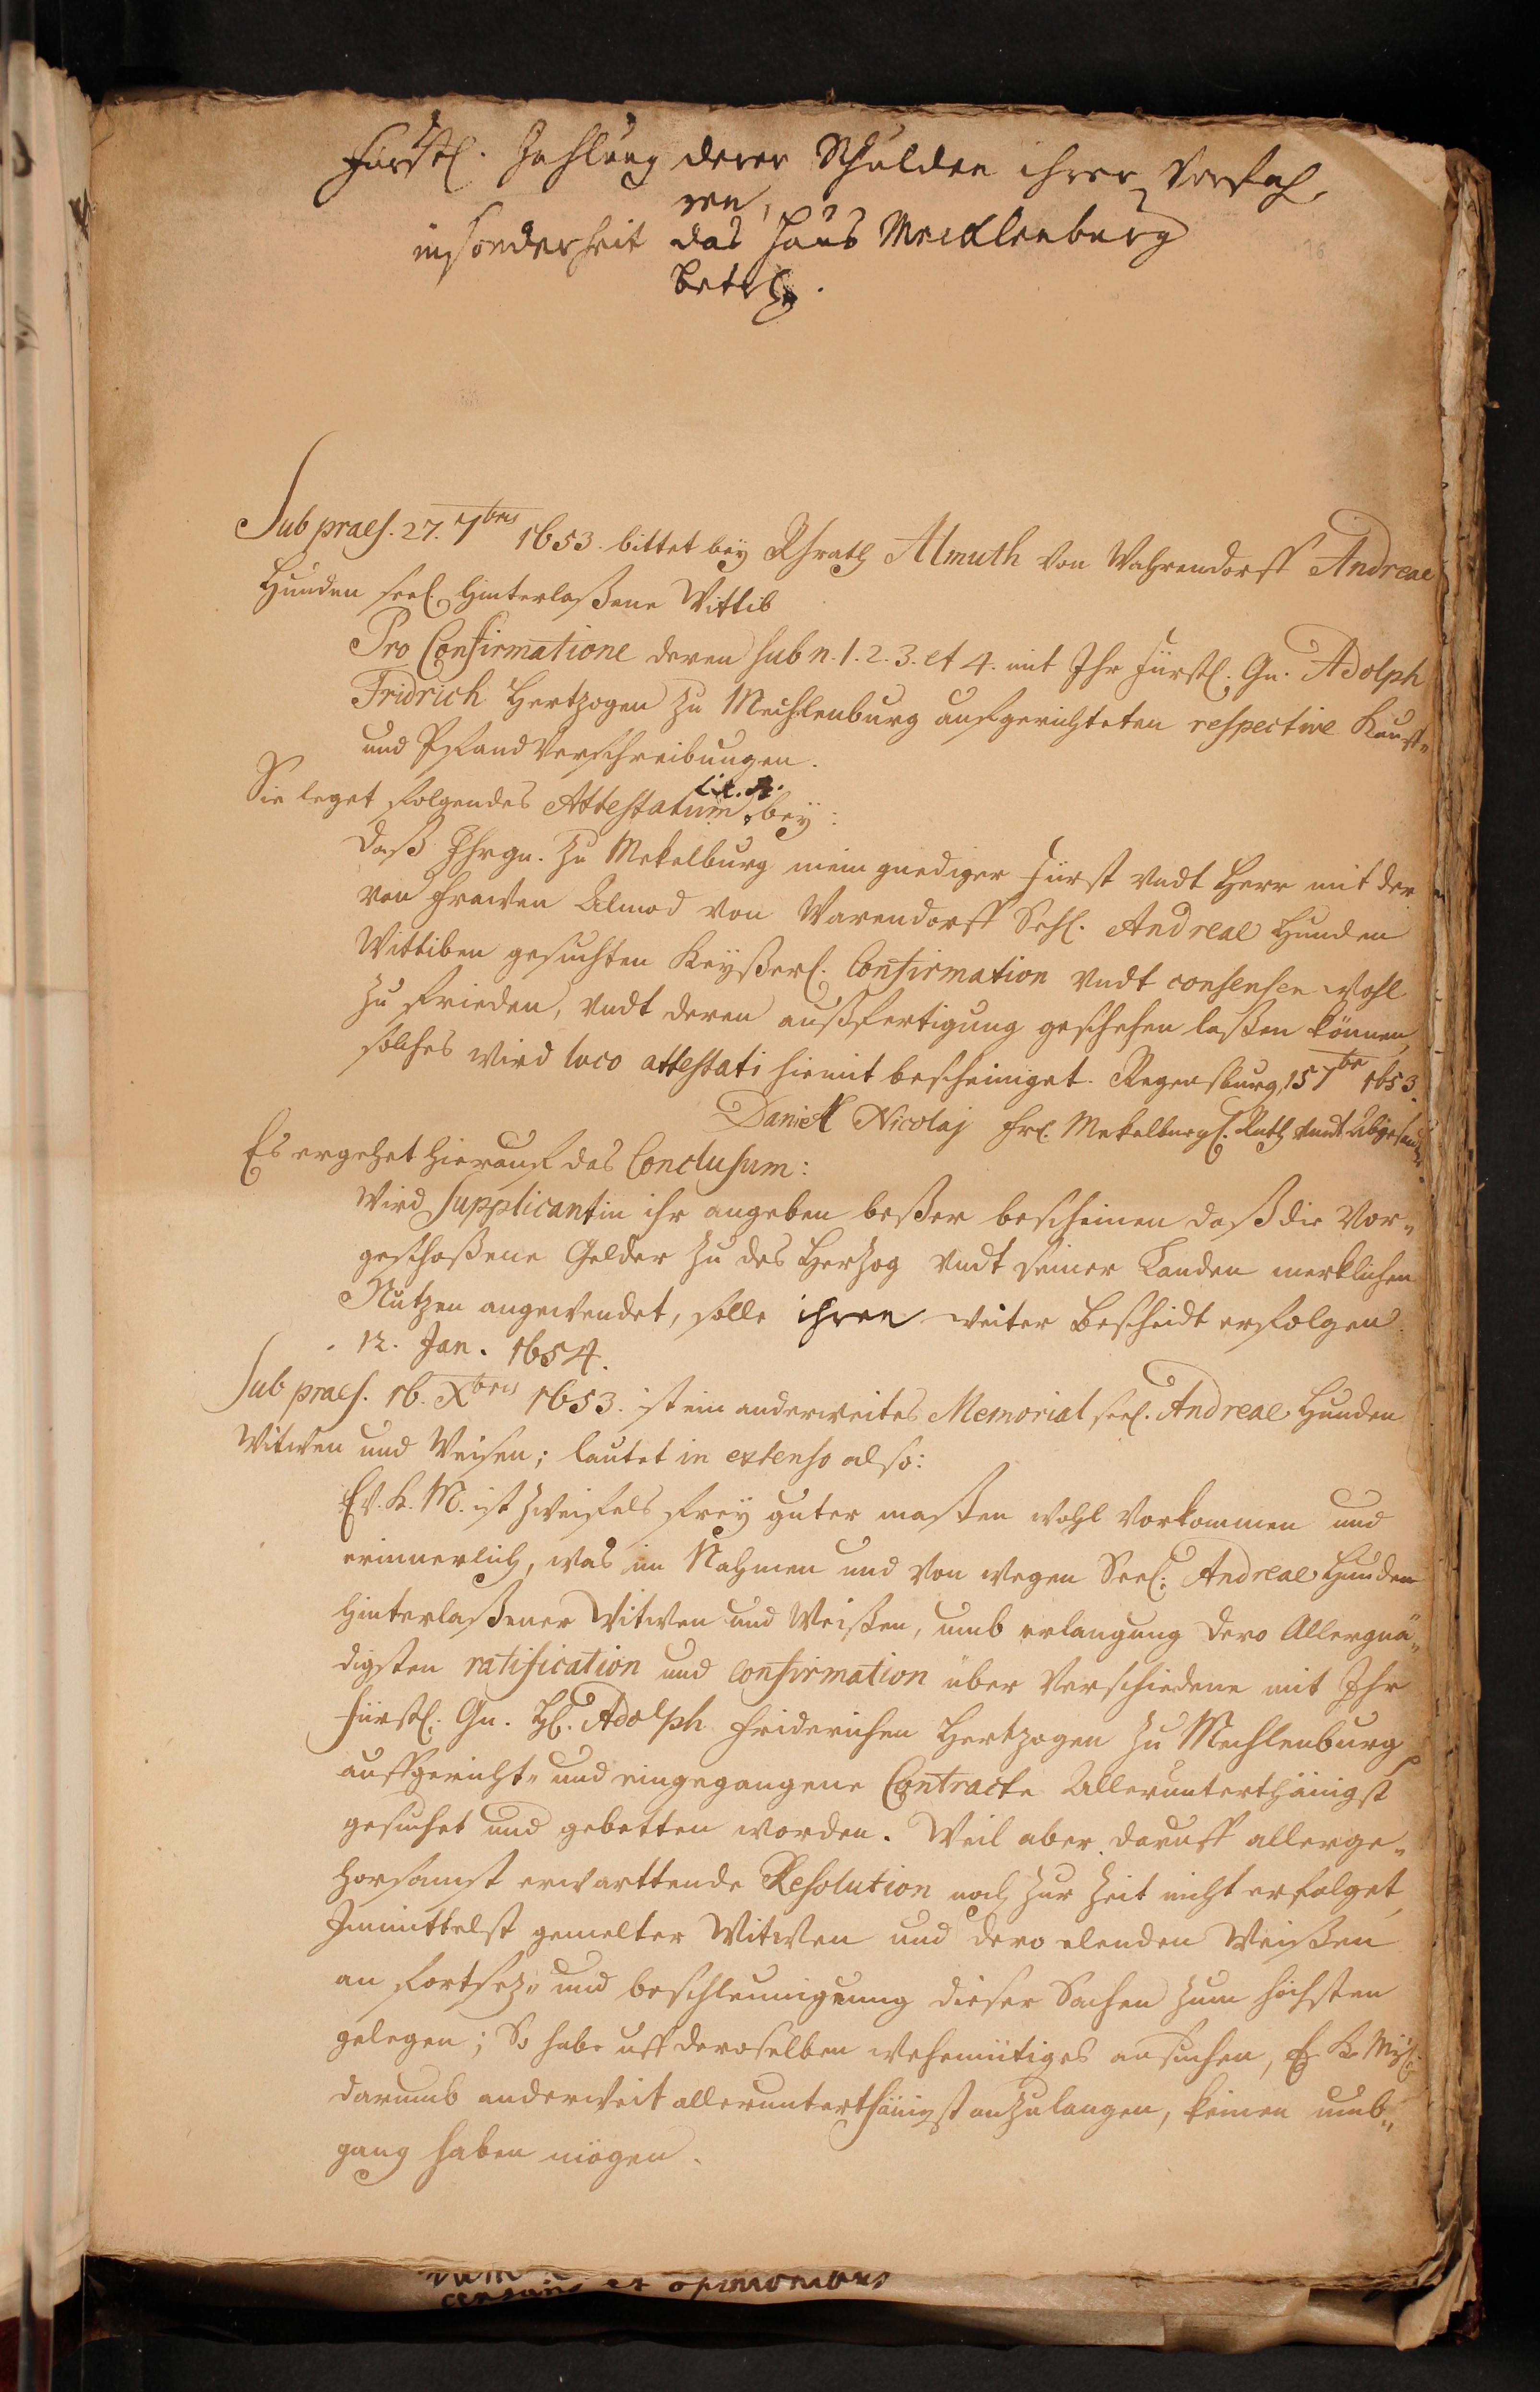 Fürstl. Zahlung derer Schulden ihrer Vorfah,
ren,
insonderheit das Haus Mecklenburg
betrl.
16
Sub praes. 27. 7bris 1653. bittet bey RHrath Almuth von Wahrendorff Andreae
Hunden seel. hinterlaßene Wittib
Pro Confirmatione deren sub n. 1. 2. 3. et 4. mit Ihr Fürstl. Gn. Adolph
Fridrich Hertzogen zu Mechlenburg auffgerichteten respective Kauff-
und Pfand Verschreibungen.
Lit. A.
Sie leget folgendes Attestatum bey:
daß Ihrgn. zu Mekelburg mein gnediger Fürst vndt Herr mit der
von Frawen Almod von Warendorff Sehl. Andreae Hunden
Wittiben gesuchten Keyßerl. Confirmation vndt consensen wohl
zu frieden, vndt deren außfertigung geschehen laßen können,
solches wird loco attestati hiemit bescheiniget. Regensburg, 15 7br 1653.
Daniel Nicolaj Frl. Mekelburgl. Rath vndt Abgesand.
Es ergehet hierauf das Conclusum:
Wird Supplicantin ihr angeben beßer bescheinen daß die Vor-
geschoßene Gelder zu des Herzog vndt seiner Landen merklichen
Nutzen angewendet, solle ihren weiter bescheidt erfolgen.
12. Jan. 1654.
Sub praes. 16. Xbris 1653. ist ein anderweites Memorial seel. Andreae Hunden
Witwen und Weisen; lautet in extenso also:
E. K. M. ist zweifels frey guter maßen wohl vorkommen und
erinnerlich, was im Nahmen und von wegen Seel. Andreae Hunden
hinterlaßener Witwen und Weißen, umb erlangung dero Allergnä-
digsten ratification und confirmation über verschiedene mit Ihr
Fürstl. Gn. H. Adolph Friderichen Hertzogen zu Mechlenburg
auffgericht- und eingegangene Contracte Allerunterthänigst
gesuchet und gebetten worden. Weil aber daruff allerge-
horsamst erwarttende Resolution noch zur Zeit nicht erfolget,
Immittelst gemelter Witwen und dero elenden Weißen
an fortsez- und beschleunigung dieser Sachen zum höchsten
gelegen; So habe uff deroselben wehemütiges ansuchen, E. K. Myt.
darumb anderweit allerunterthänigst anzulangen, keinen umb-
gang haben mögen.
et opinionibus